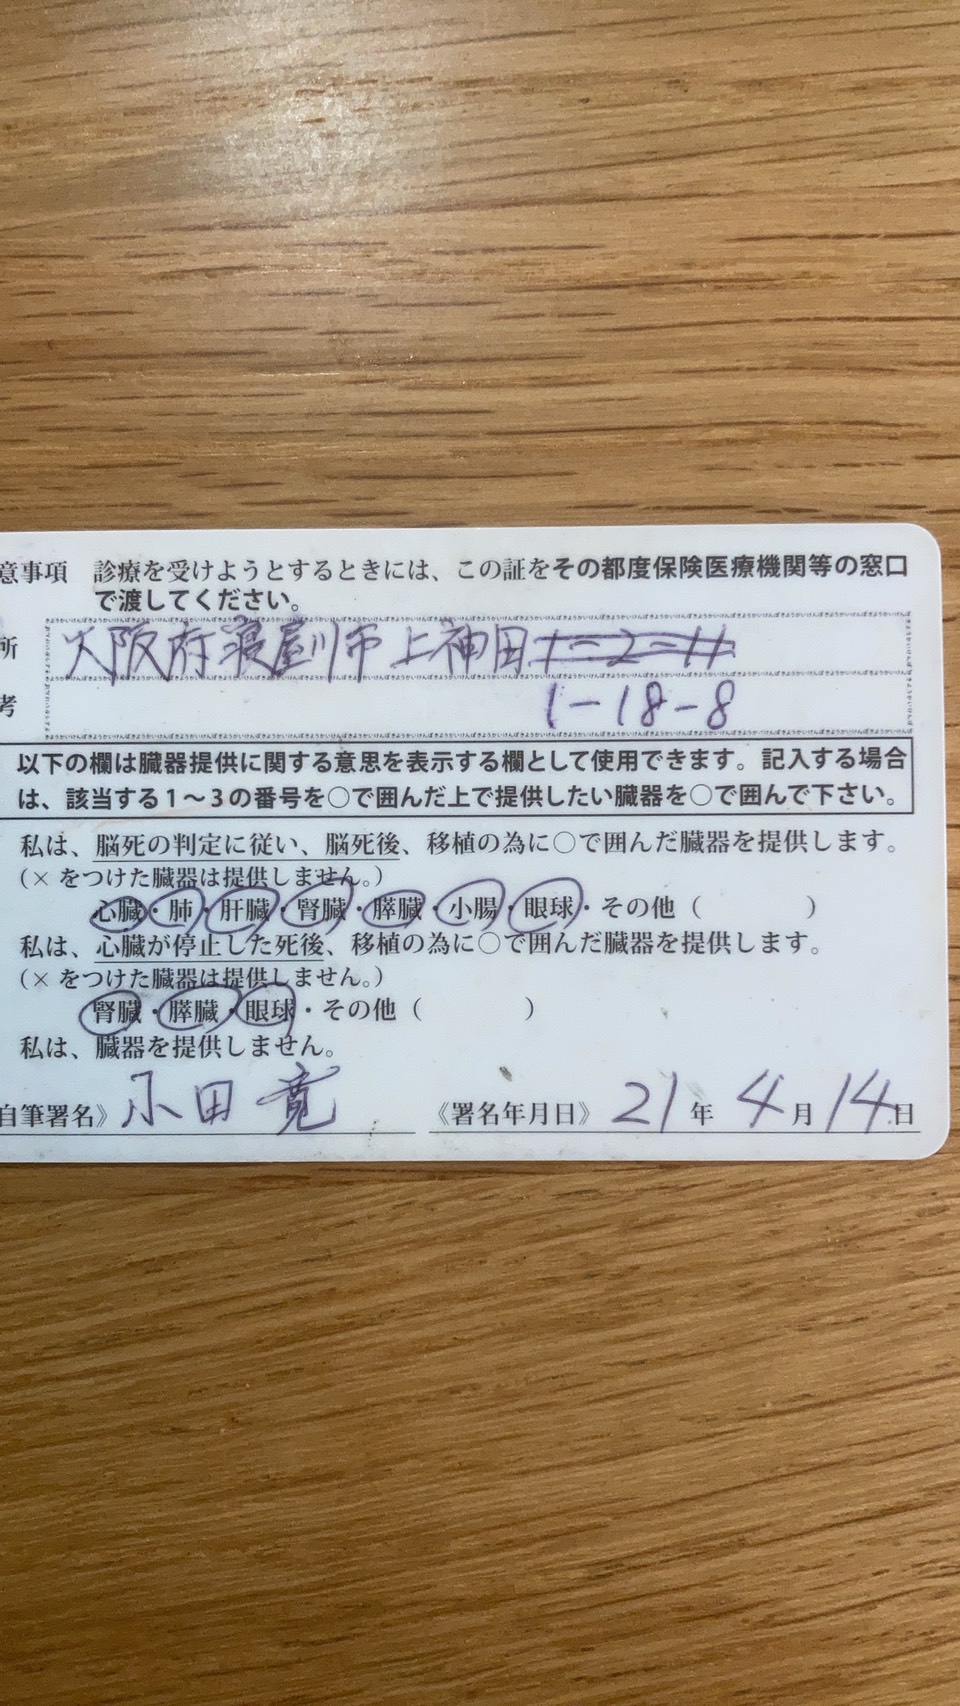 意事項 診療を受けようとするときには、この証をその都度保険医療機関等の窓口
で渡してください。
所 大阪府寝屋川市上神田1-2-11
考 1-18-8
以下の欄は臓器提供に関する意思を表示する欄として使用できます。記入する場合
は、該当する1〜3の番号を○で囲んだ上で提供したい臓器を○で囲んで下さい。
私は、脳死の判定に従い、脳死後、移植の為に○で囲んだ臓器を提供します。
(×をつけた臓器は提供しません。)
心臓・肺・肝臓・腎臓・膵臓・小腸・眼球・その他( )
私は、心臓が停止した死後、移植の為に○で囲んだ臓器を提供します。
(×をつけた臓器は提供しません。)
腎臓・膵臓・眼球・その他( )
私は、臓器を提供しません。
自筆署名》小田 寛 《署名年月日》21年4月14日